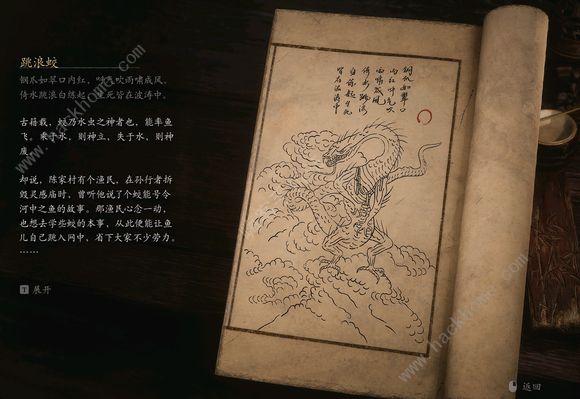 跳浪蛟
钢爪如翠口内红，吐气吹雨啸成风。
倚水跳浪白练起，生死皆在波涛中。
古籍载，蛟乃水虫之神者也，能率鱼
飞。乘于水，则神立，失于水，则神
废。
却说，陈家村有个渔民，在孙行者拆
毁灵感庙时，曾听他说了个蛟能号令
河中之鱼的故事。那渔民心念一动，
也想去学些蛟的本事，从此便能让鱼
儿自己跳入网中、省下大家不少劳力。
……
T 展开
钢爪如翠口
内红吐气吹
雨啸成风
倚水跳浪
白练起生死
皆在波涛中
返回
www.hackhome.com